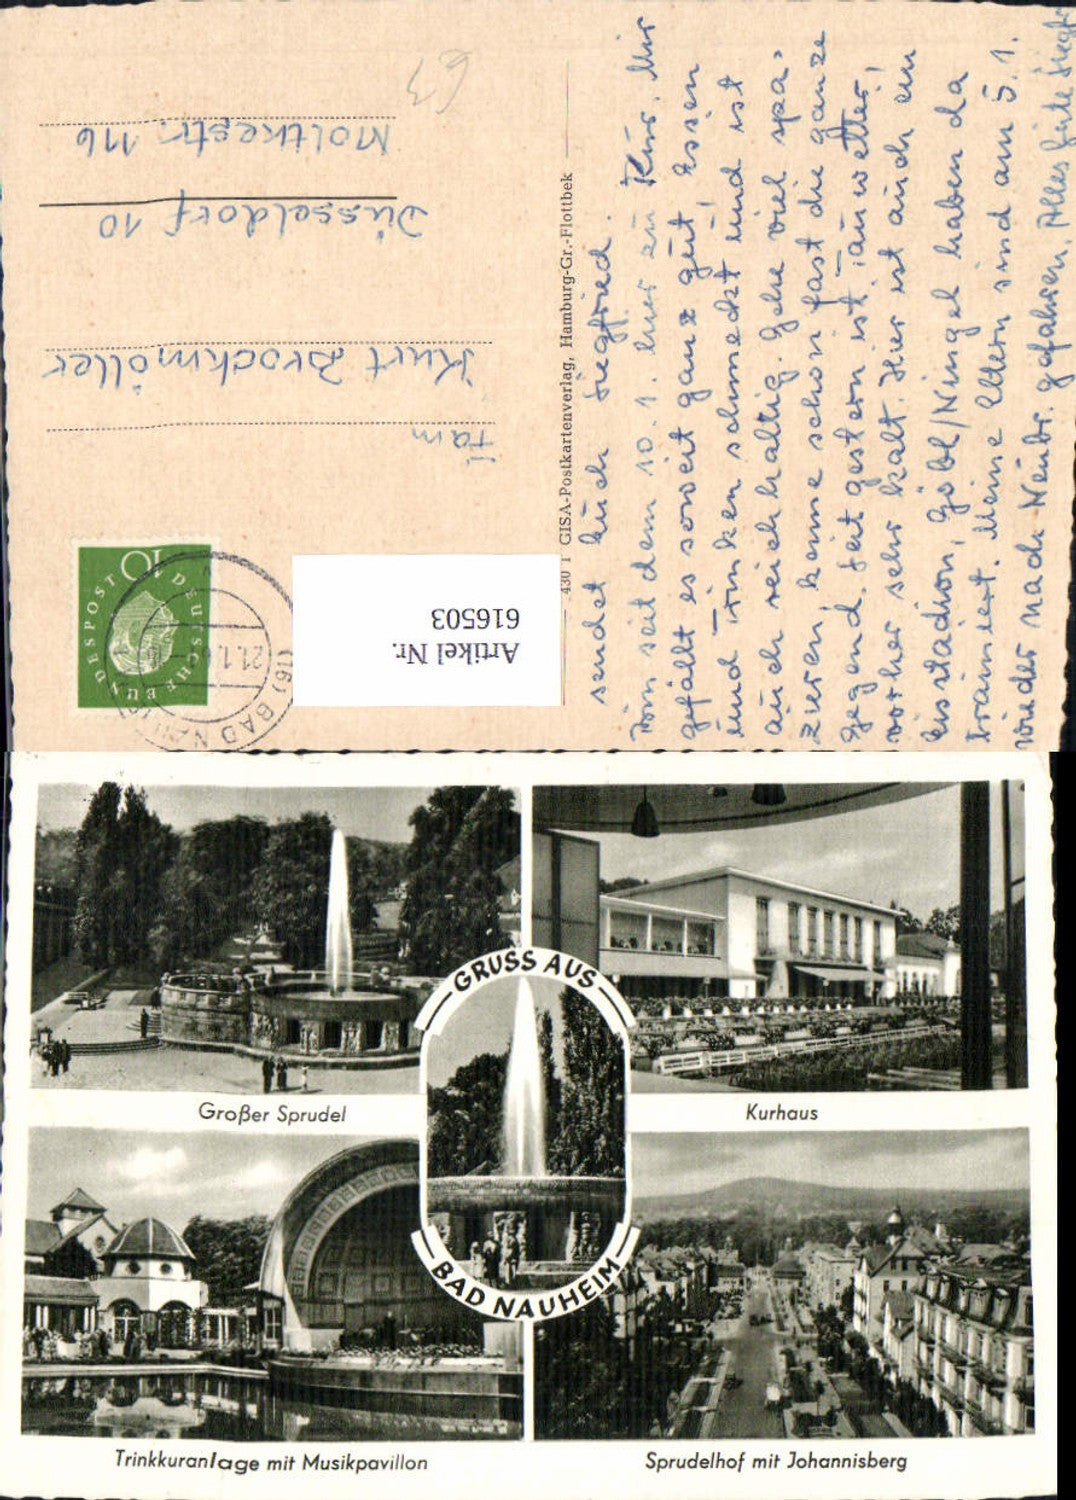 63
Fam
Kurt Brockmöller
Düsseldorf 10
Moltkestr. 116
DEUSCHE BUNDESPOST
10
21.1.6
(16) BAD NAUHEIM
Artikel Nr.
616503
430 1 GISA-Postkartenverlag, Hamburg-Gr.-Flottbek
sendet Euch Siegfried.
Bin seit dem 10. 1. hier zu Kur. Mir
gefällt es soweit ganz gut, Essen
und Trinken schmeckt und ist
auch reichhaltig. Gehe viel spa-
zieren, kenne schon fast die ganze
Gegend. Seit gestern ist Tauwetter,
vorher sehr kalt. Hier ist auch ein
Eisstadion, haben da
trainiert. Meine Eltern sind am 5. 1.
wieder nach Neubr. gefahren. Alles Gute Siegfr
GRUSS AUS
BAD NAUHEIM
Großer Sprudel
Kurhaus
Trinkkuranlage mit Musikpavillon
Sprudelhof mit Johannisberg